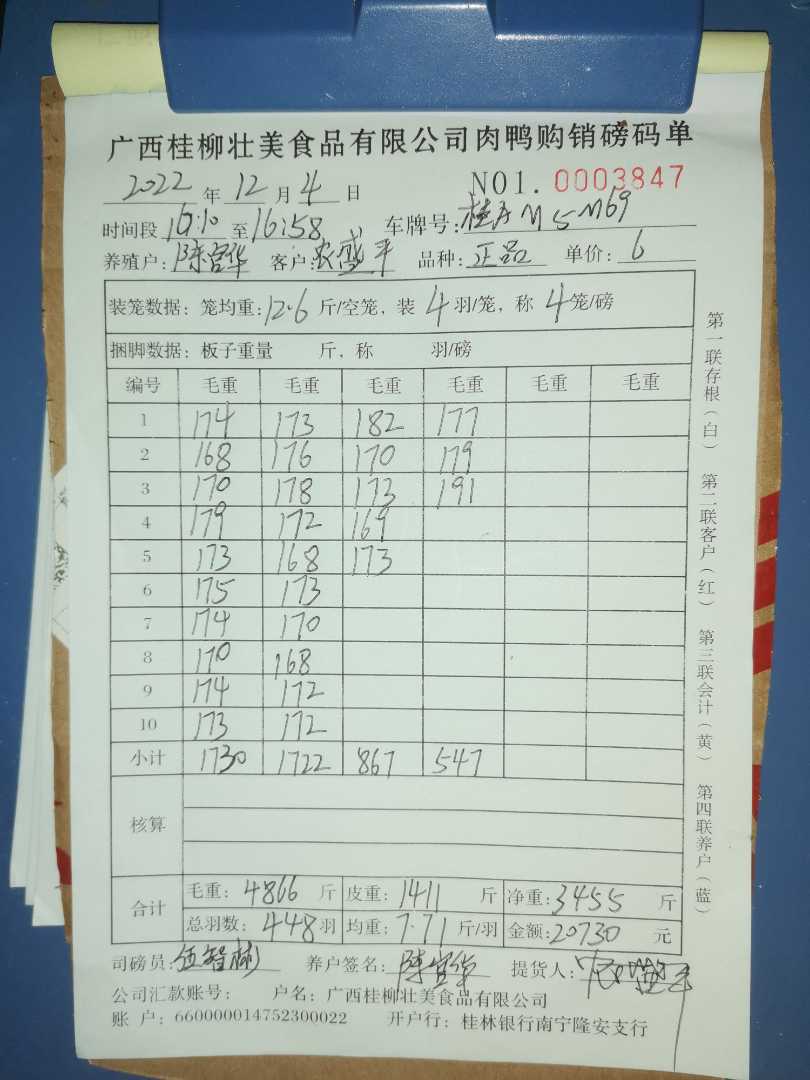 广西桂柳壮美食品有限公司肉鸭购销磅码单
2022 年 12 月 4 日 NO1. 0003847
时间段 16:10 至 16:58 车牌号: 桂 M69
养殖户: 陈宫华 客户: 农盛平 品种: 正品 单价: 6
装笼数据: 笼均重: 12.6 斤/空笼, 装 4 羽/笼, 称 4 笼/磅
捆脚数据: 板子重量 斤, 称 羽/磅
编号 毛重 毛重 毛重 毛重 毛重 毛重
1 174 173 182 177
2 168 176 170 179
3 170 178 173 191
4 179 172 169
5 173 168 173
6 175 173
7 174 170
8 170 168
9 174 172
10 173 172
小计 1730 1722 867 547
核算
合计 毛重: 4866 斤 皮重: 1411 斤 净重: 3455 斤
总羽数: 448 羽 均重: 7.71 斤/羽 金额: 20730 元
司磅员: 伍智彬 养户签名: 陈宫华 提货人:
公司汇款账号: 户名: 广西桂柳壮美食品有限公司
账 户: 660000014752300022 开户行: 桂林银行南宁隆安支行
第一联存根(白) 第二联客户(红) 第三联会计(黄) 第四联养户(蓝)